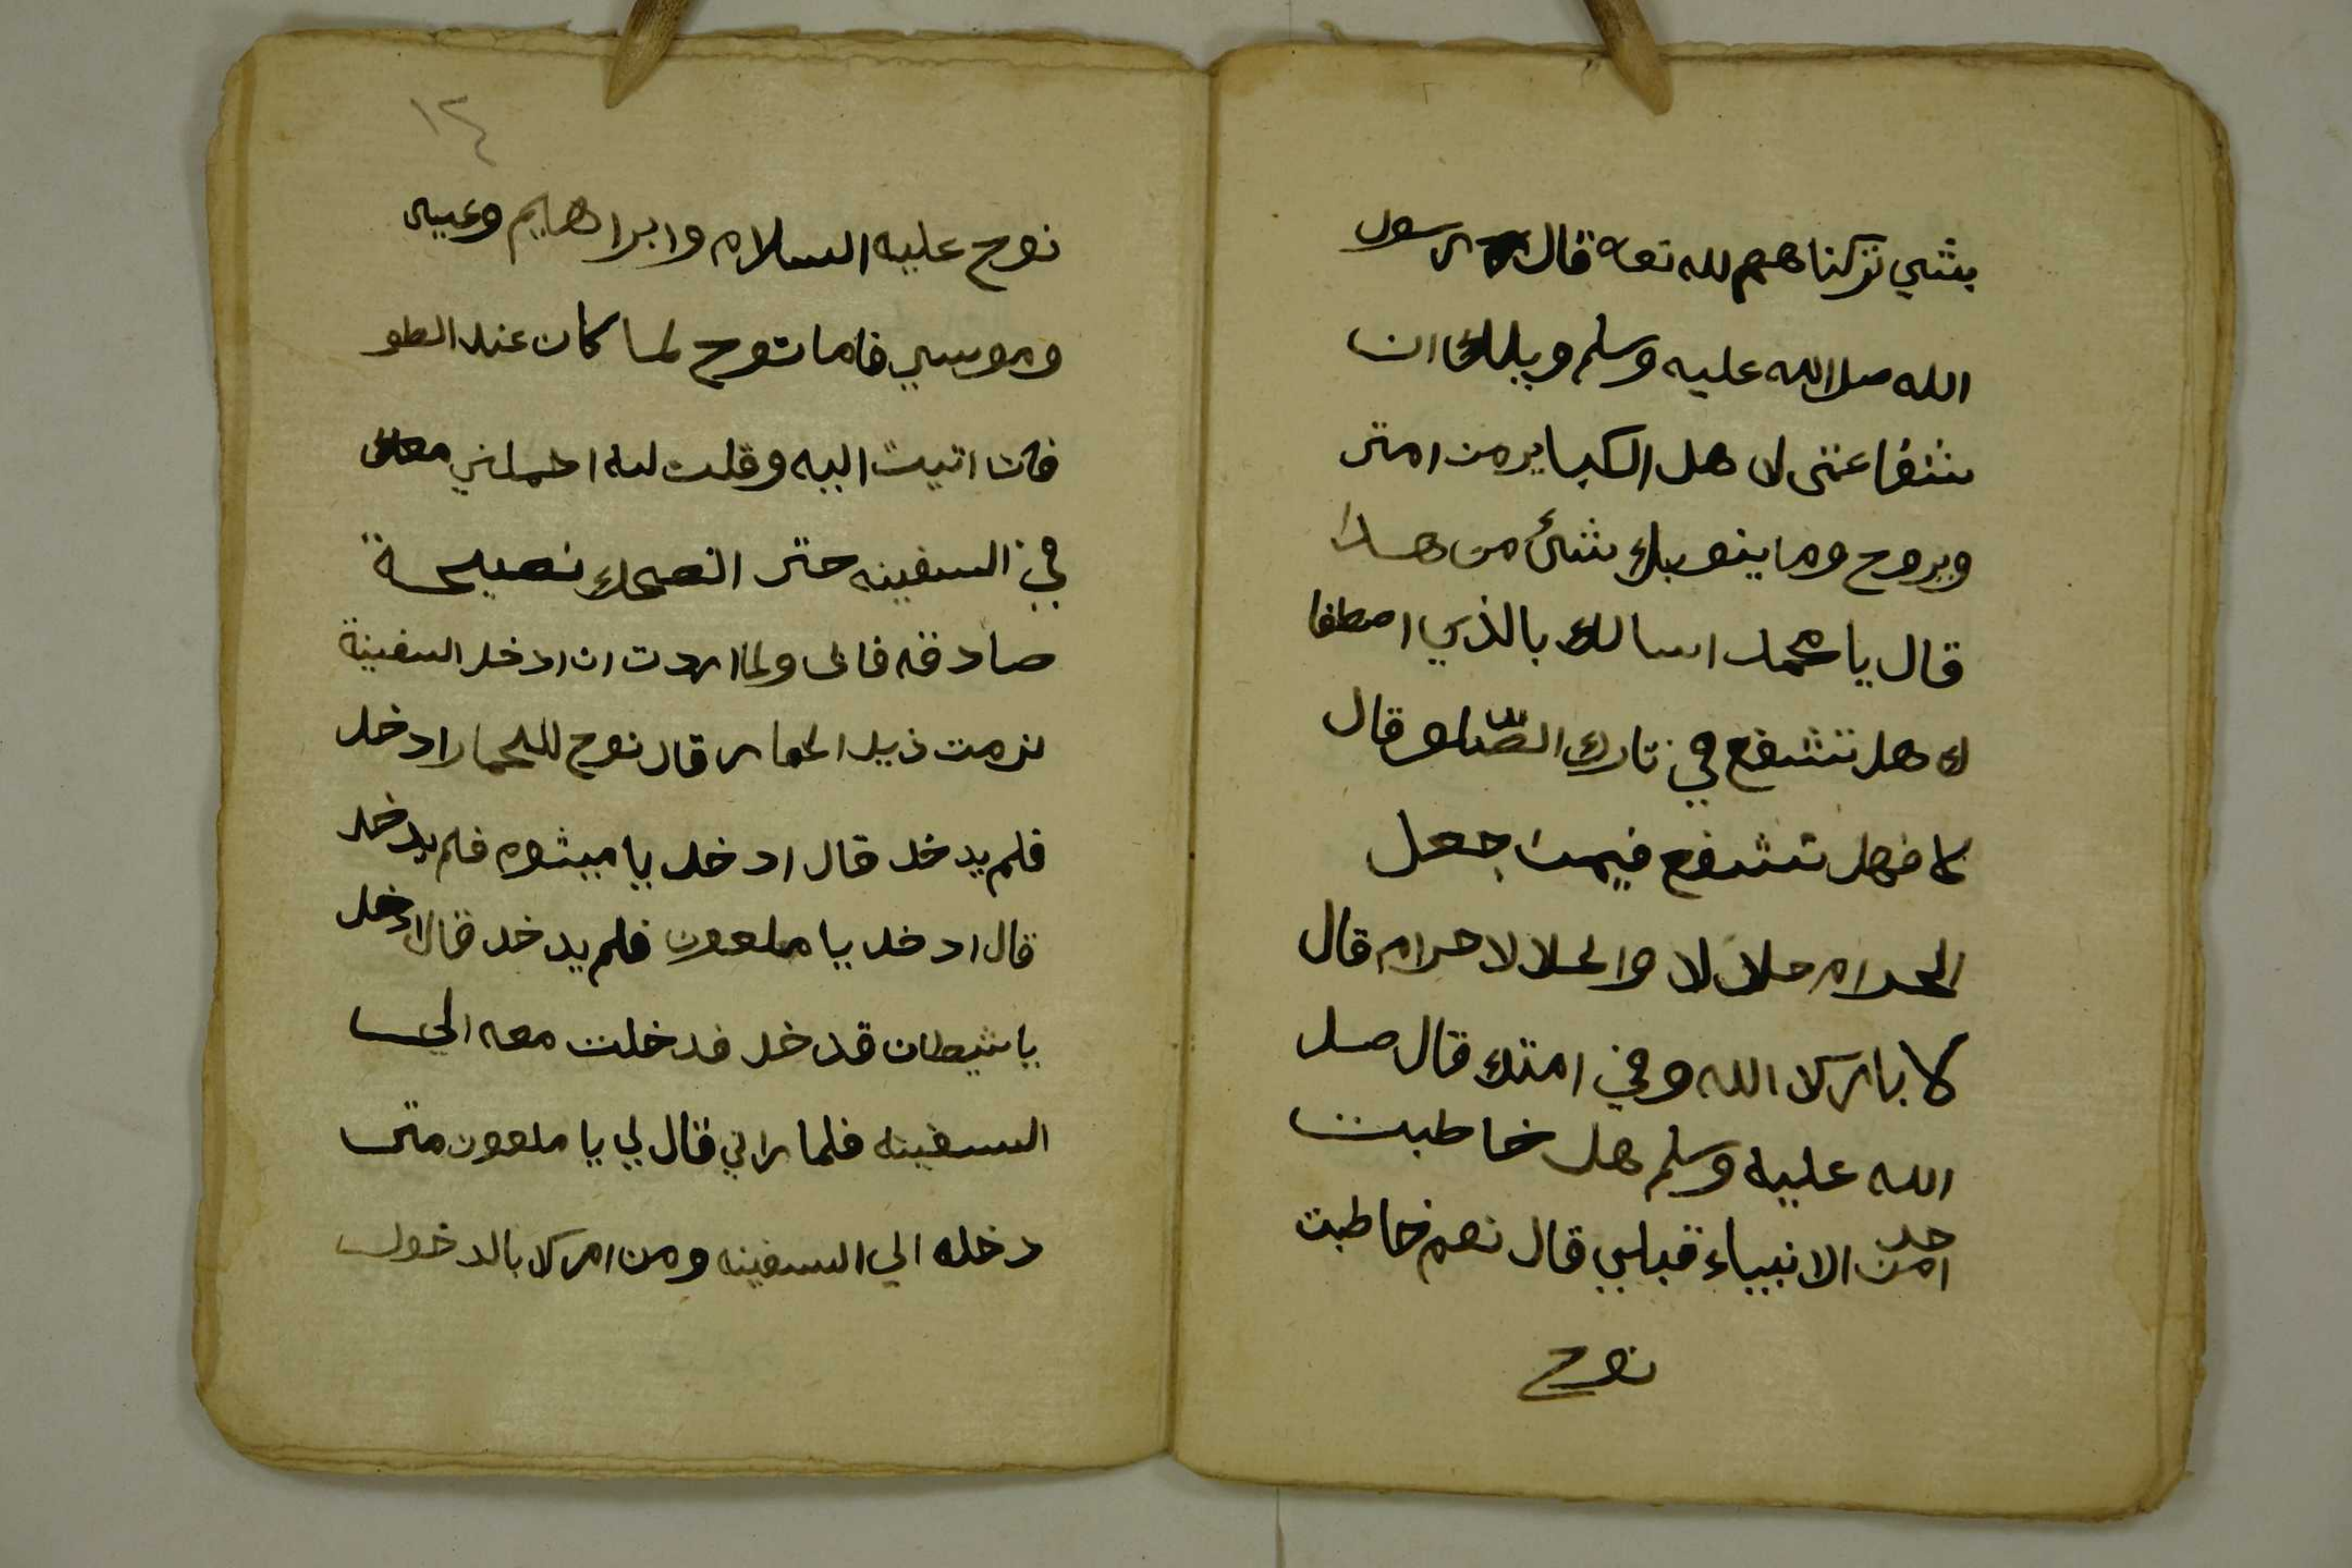 بشي تركناهم لله تعه قال رسول
الله صلا الله عليه وسلم ويلك ان
شفاعتى لاهل الكباير من امتى
ويروح وما ينوبك شئ من هدا
قال يا محمد اسالك بالذي اصطفا
ك هل تشفع في تارك الصلاو قال
لا فهل تشفع فيمن جعل
الحرام حلالا والحلالا حرام قال
لا بارك الله وفي امتك قال صل
الله عليه وسلم هل خاطبت
احد من الانبياء قبلي قال نعم خاطبت
نوح
١٤
نوح عليه السلام وابراهيم وعيسى
وموسي فاما نوح لما كان عند الطو
فان اتيت اليه وقلت له احملني معك
في السفينه حتى انصحك نصيحة
صادقه فابى ولما اردت ان ادخل السفينة
لزمت ذيل الحمار قال نوح للحمار ادخل
فلم يدخل قال ادخل يا ميشوم فلم يدخل
قال ادخل يا ملعون فلم يدخل قال ادخل
يا شيطان قدخل فدخلت معه الي
السفينه فلما راني قال لي يا ملعون متى
دخله الي السفينه ومن امرك بالدخول